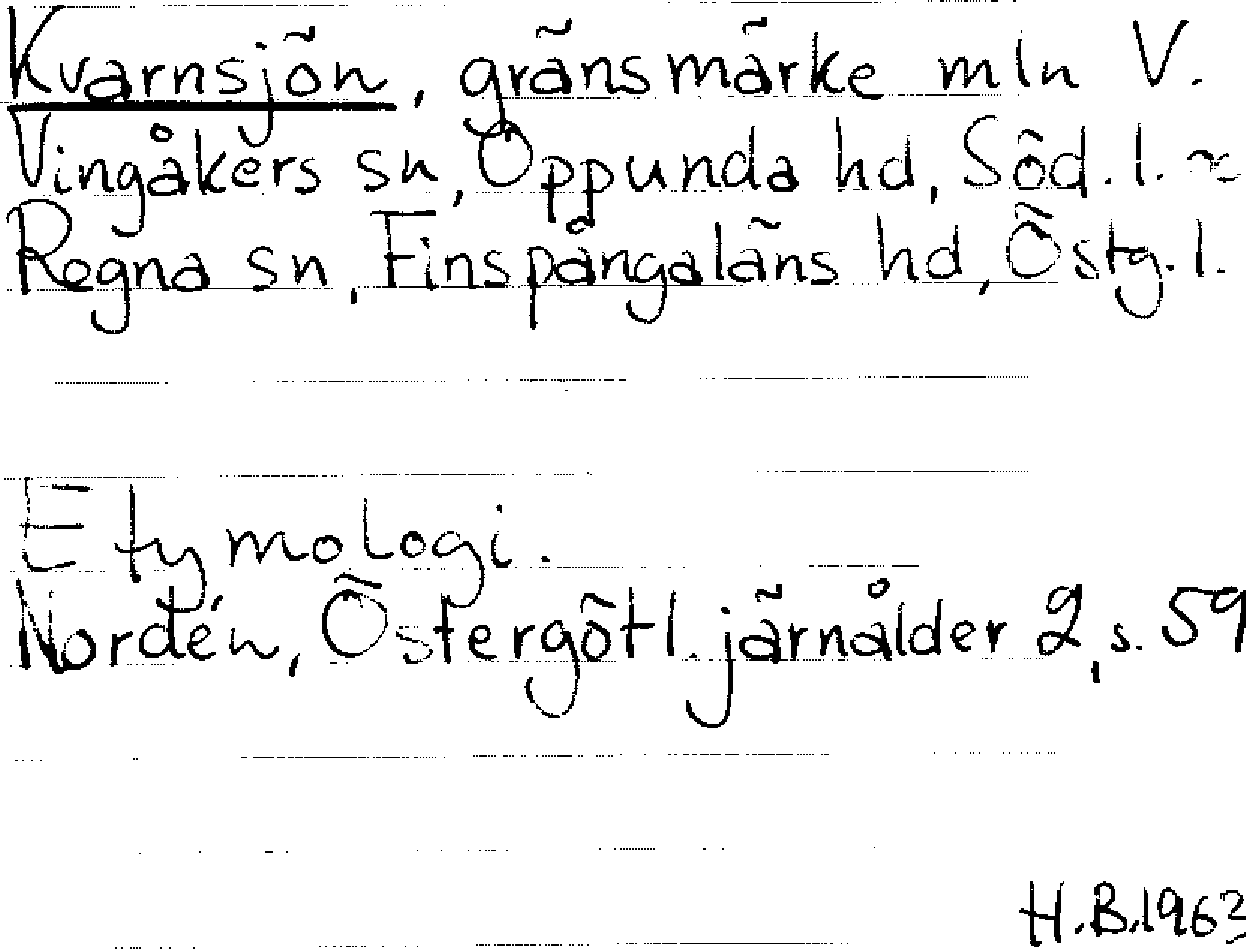 Kvarnsjön, gränsmärke mln V.
Vingåkers sn, Oppunda hd, Söd. l. ~
Regna sn, Finspångaläns hd, Östg. l.
Etymologi.
Nordén, Östergötl. järnålder 2, s. 59
H.B. 1963